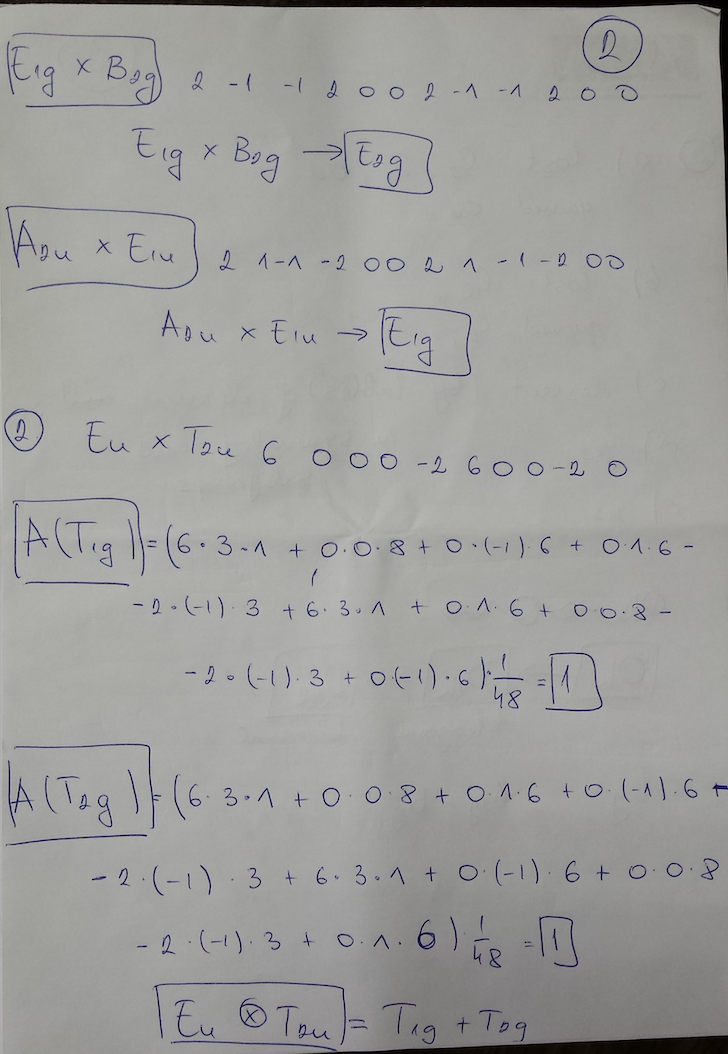 2
E1g × B2g 2 -1 -1 2 0 0 2 -1 -1 2 0 0
E1g × B2g → E2g
A2u × E1u 2 1 -1 -2 0 0 2 1 -1 -2 0 0
A2u × E1u → E1g
2 Eu × T2u 6 0 0 0 -2 6 0 0 -2 0
A(T1g) = (6·3·1 + 0·0·8 + 0·(-1)·6 + 0·1·6 -
-2·(-1)·3 + 6·3·1 + 0·1·6 + 0·0·8 -
-2·(-1)·3 + 0(-1)·6)·1/48 = 1
A(T2g) = (6·3·1 + 0·0·8 + 0·1·6 + 0·(-1)·6 -
-2·(-1)·3 + 6·3·1 + 0·(-1)·6 + 0·0·8
-2·(-1)·3 + 0·1·6)·1/48 = 1
Eu ⊗ T2u = T1g + T2g